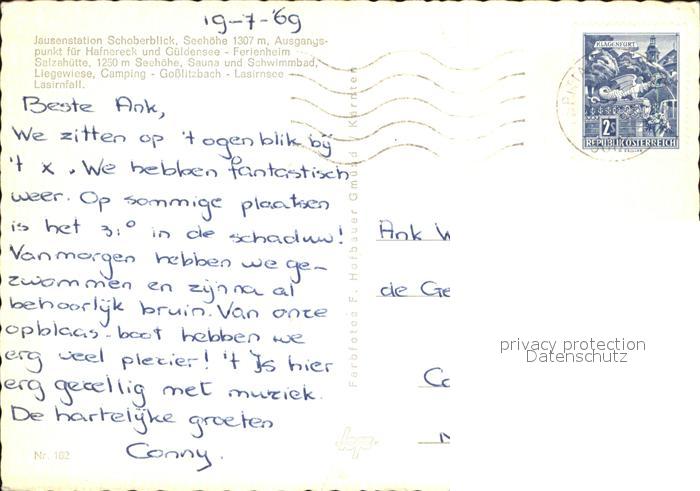 19-7-'69
Jausenstation Schoberblick, Seehöhe 1307 m, Ausgangs-
punkt für Hafnereck und Güldensee - Ferienheim
Salzahütte, 1250 m Seehöhe, Sauna und Schwimmbad,
Liegewiese, Camping - Goßlitzbach - Lasirnsee -
Lasirnfall.
KLAGENFURT
2S
REPUBLIK ÖSTERREICH
Beste Ank,
We zitten op 't ogenblik bij
't x. We hebben fantastisch
weer. Op sommige plaatsen
is het in de schaduw!
Vanmorgen hebben we ge-
zwommen en zijn na al
behoorlijk bruin. Van onze
opblaas-boot hebben we
erg veel plezier! 't Is hier
erg gezellig met muziek.
De hartelijke groeten
Conny.
Nr. 102
Farbfotos F. Hofbauer Gmünd / Kärnten
Ank W
de Ge
privacy protection
Datenschutz